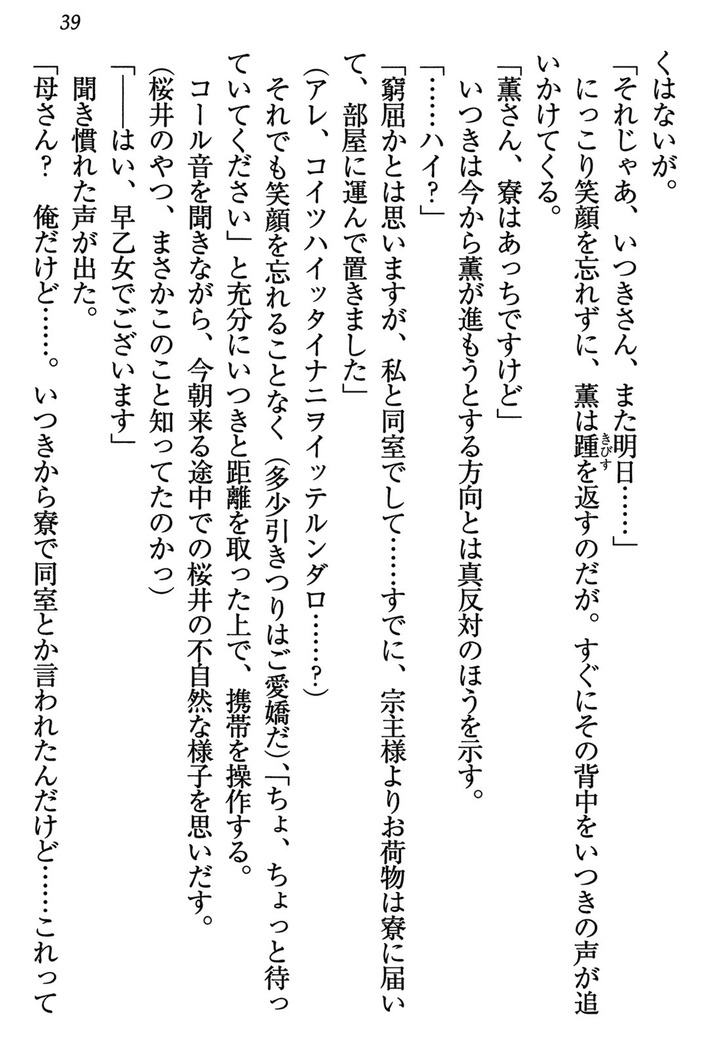 39
くはないが。
「それじゃあ、いつきさん、また明日……」
にっこり笑顔を忘れずに、薫は踵を返すのだが。すぐにその背中をいつきの声が追
きびす
いかけてくる。
「薫さん、寮はあっちですけど」
いつきは今から薫が進もうとする方向とは真反対のほうを示す。
「……ハイ？」
「窮屈かとは思いますが、私と同室でして……すでに、宗主様よりお荷物は寮に届い
て、部屋に運んで置きました」
（アレ、コイツハイッタイナニヲイッテルンダロ……？）
それでも笑顔を忘れることなく（多少引きつりはご愛嬌だ）、「ちょ、ちょっと待っ
ていてください」と充分にいつきと距離を取った上で、携帯を操作する。
コール音を聞きながら、今朝来る途中での桜井の不自然な様子を思いだす。
（桜井のやつ、まさかこのこと知ってたのかっ）
「――はい、早乙女でございます」
聞き慣れた声が出た。
「母さん？　俺だけど……。いつきから寮で同室とか言われたんだけど……これって